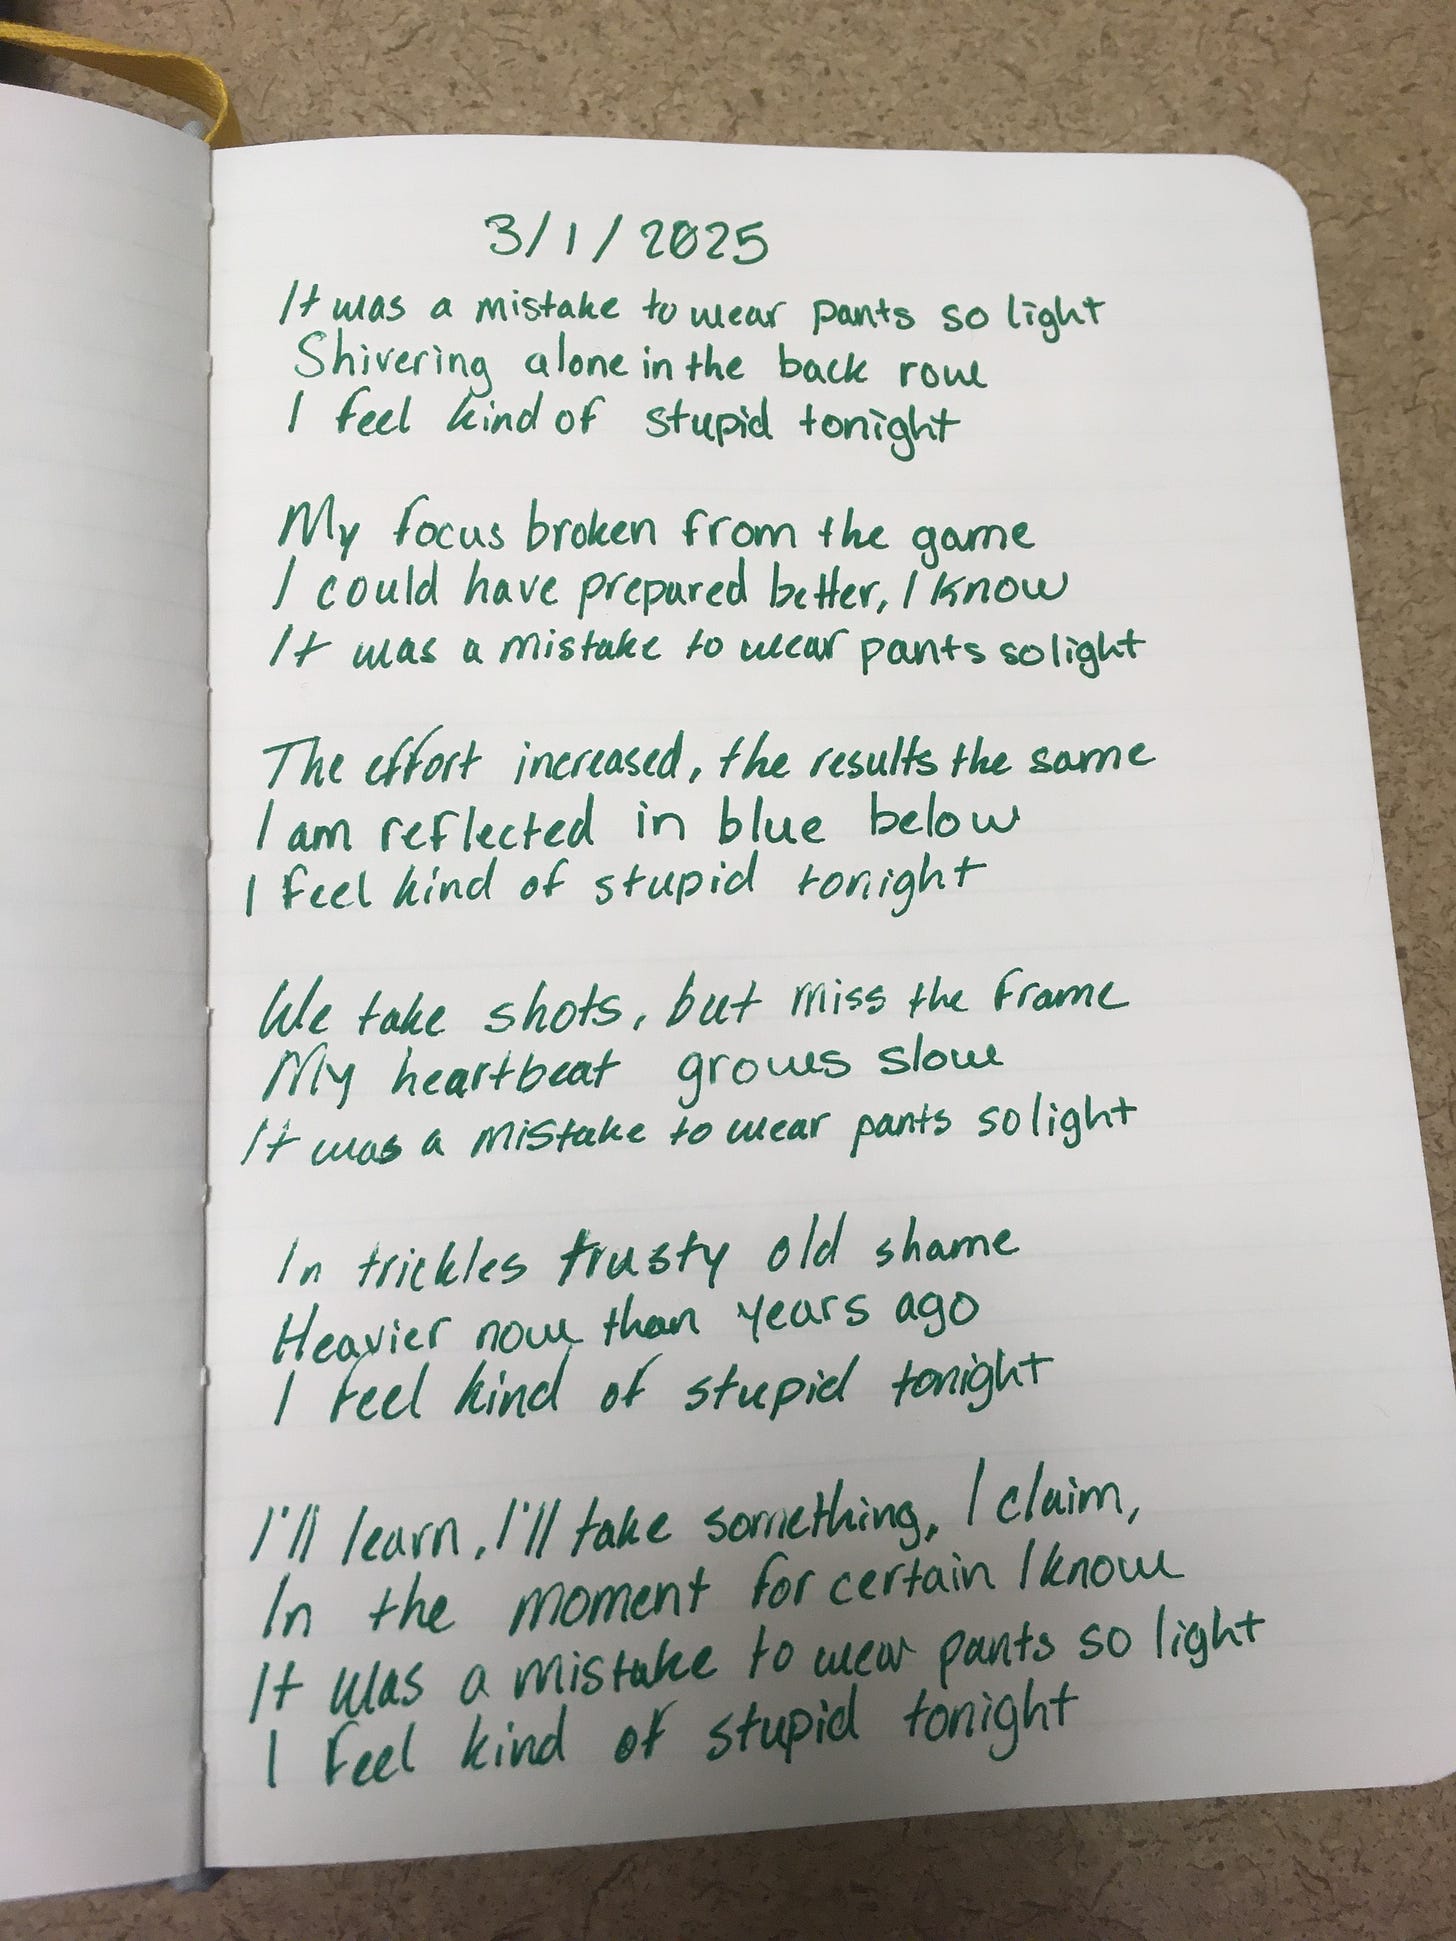 3/1/2025
It was a mistake to wear pants so light
Shivering alone in the back row
I feel kind of stupid tonight
My focus broken from the game
I could have prepared better, I know
It was a mistake to wear pants so light
The effort increased, the results the same
I am reflected in blue below
I feel kind of stupid tonight
We take shots, but miss the frame
My heartbeat grows slow
It was a mistake to wear pants so light
In trickles trusty old shame
Heavier now than years ago
I feel kind of stupid tonight
I'll learn, I'll take something, I claim,
In the moment for certain I know
It was a mistake to wear pants so light
I feel kind of stupid tonight